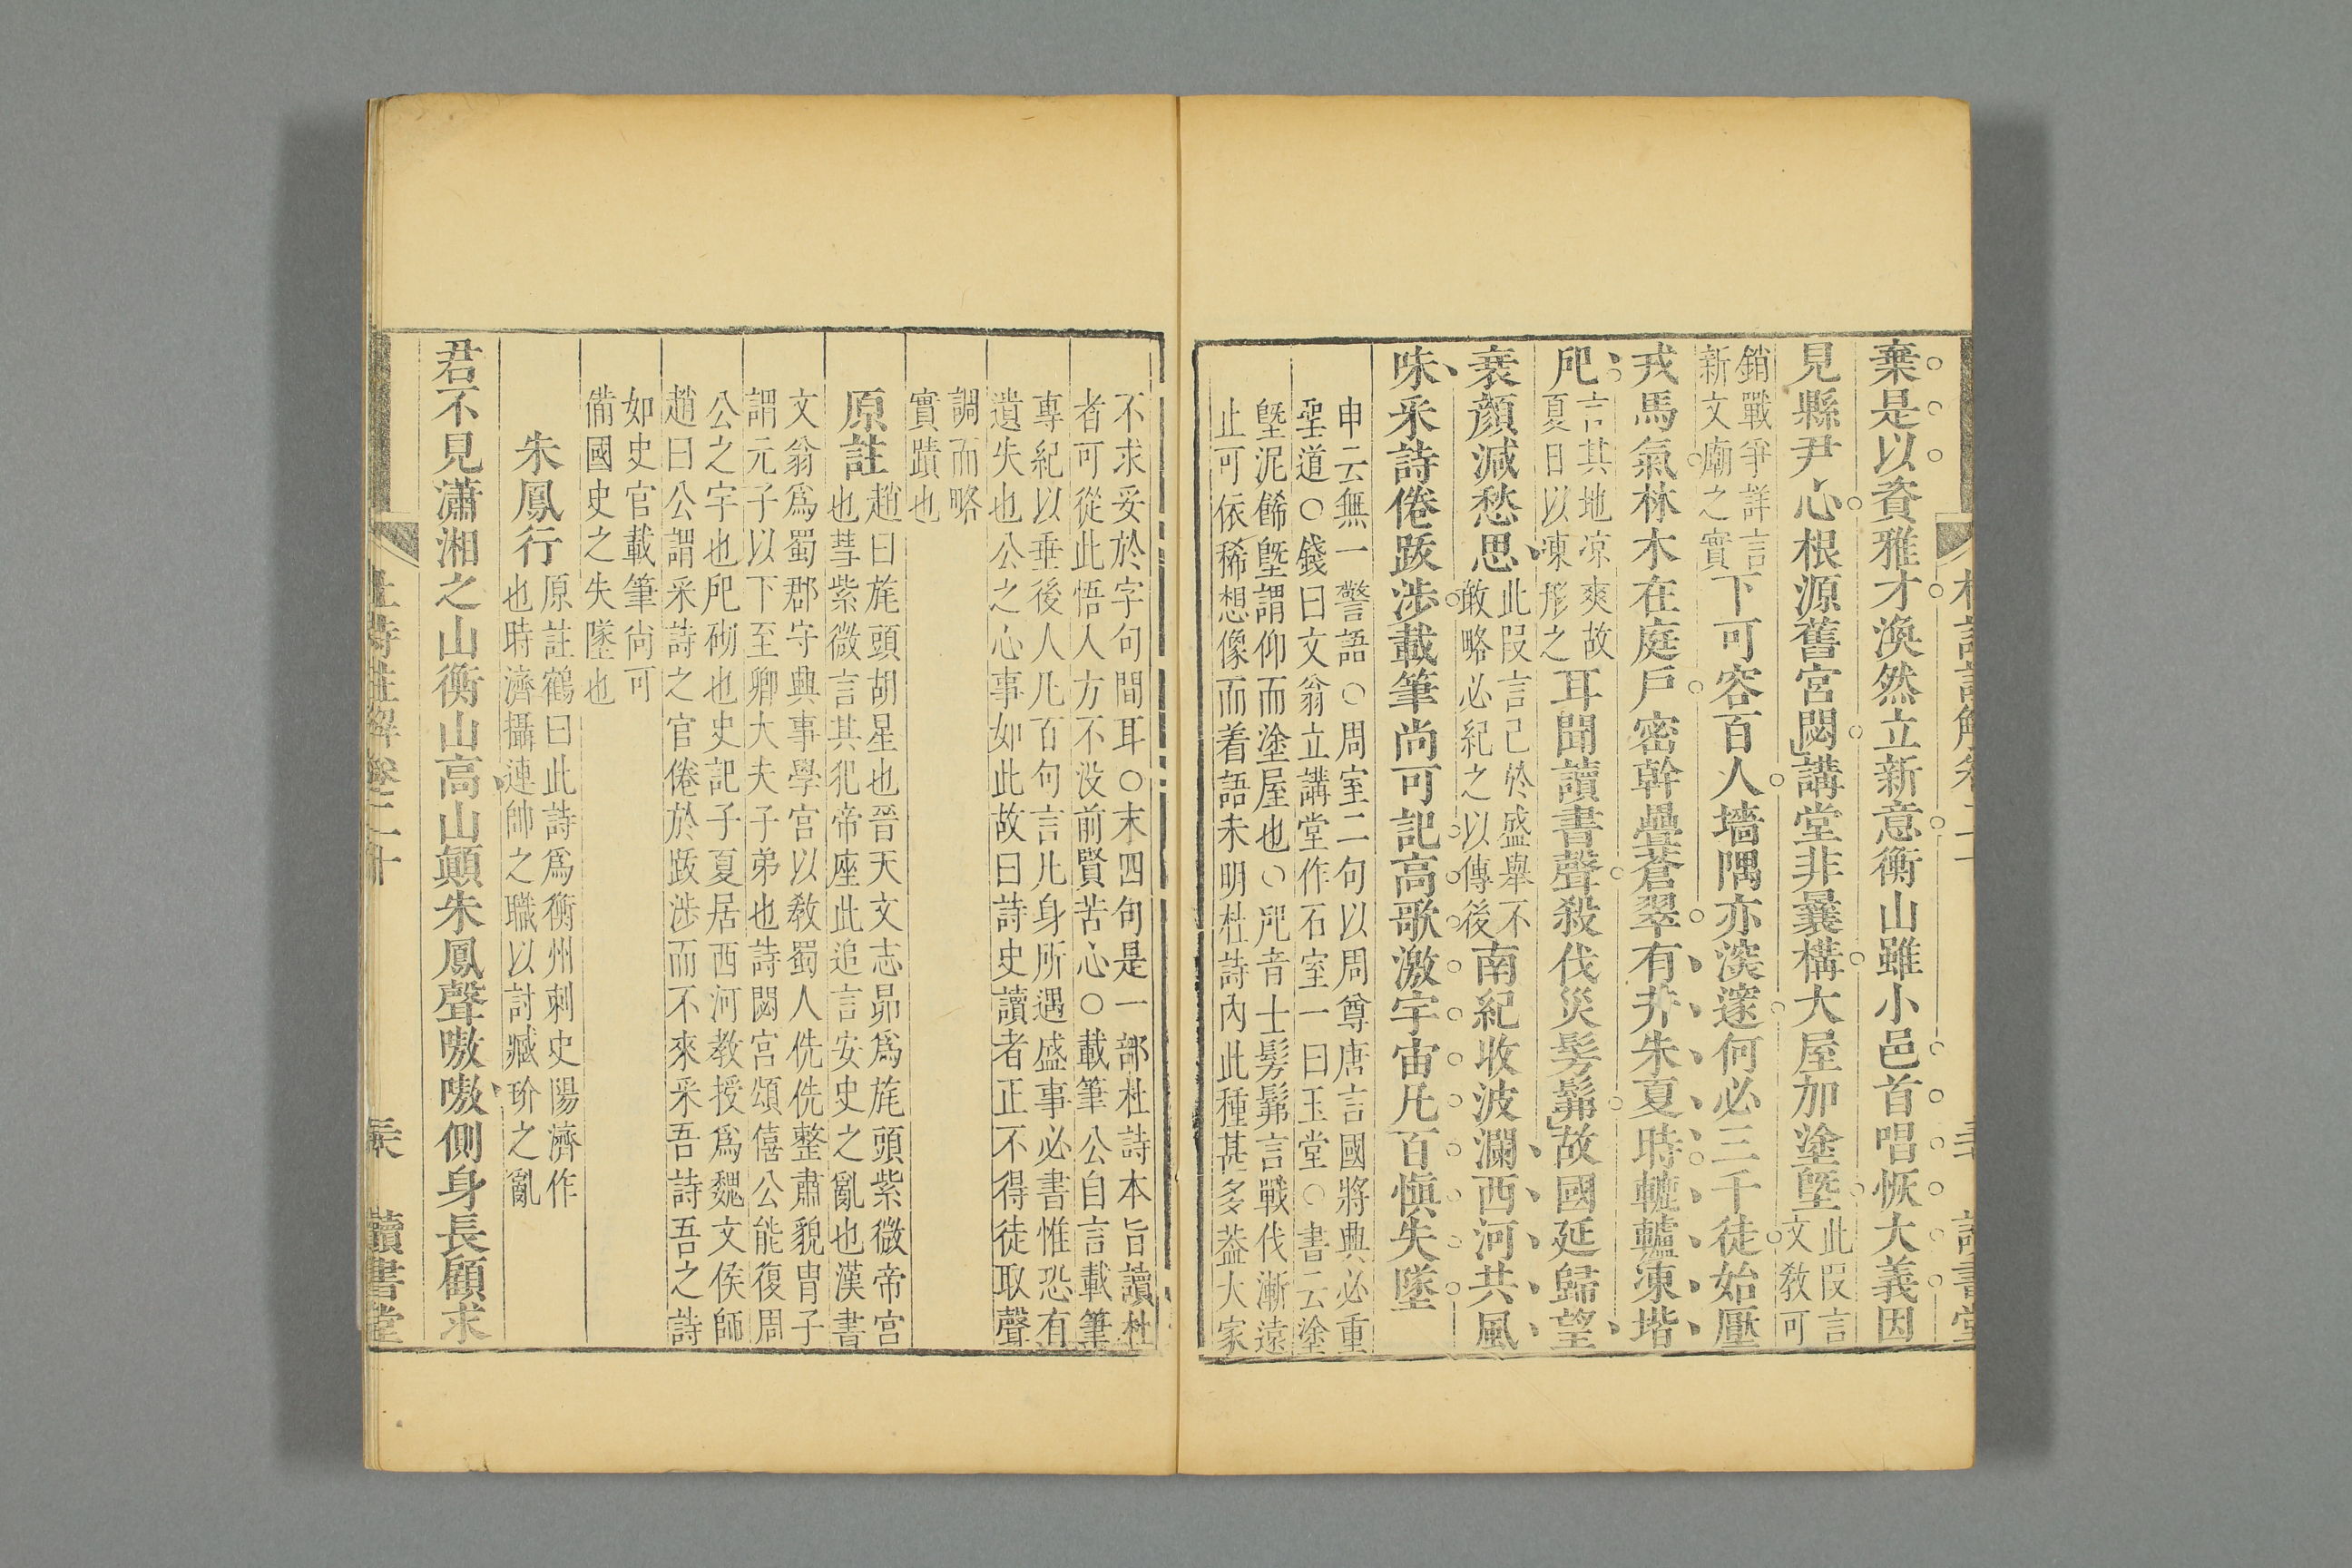 杜詩註解卷二十 讀書堂
棄是以資雅才渙然立新意衡山雖小邑首唱恢大義因
見縣尹心根源舊宮閟講堂非曩構大屋加塗墍此叚言文教可
銷戰爭詳言新文廟之實下可容百人墻隅亦深邃何必三千徒始壓
戎馬氣林木在庭戶密幹疊蒼翠有井朱夏時轆轤凍堦
戺言其地凉爽故夏日以凍形之耳聞讀書聲殺伐災髣髴故國延歸望
衰顔減愁思此叚言己於盛舉不敢略必紀之以傳後南紀收波瀾西河共風
味采詩倦跋涉載筆尚可記高歌激宇宙凡百慎失墜
申云無一警語○周室二句以周尊唐言國將興必重
聖道○錢曰文翁立講堂作石室一曰玉堂○書云塗
墍泥餙墍謂仰而塗屋也○戺音士髣髴言戰伐漸遠
止可依稀想像而着語未明杜詩內此種甚多葢大家
不求妥於字句間耳○末四句是一部杜詩本旨讀杜
者可從此悟人方不沒前賢苦心○載筆公自言載筆
專紀以垂後人凡百句言凡身所遇盛事必書惟恐有
遺失也公之心事如此故曰詩史讀者正不得徒取聲
調而略
實蹟也
原註趙曰旄頭胡星也晉天文志昴爲旄頭紫微帝宮
也彗紫微言其犯帝座此追言安史之亂也漢書
文翁爲蜀郡守興事學宮以教蜀人侁侁整肅貌冑子
謂元子以下至卿大夫子弟也詩閟宮頌僖公能復周
公之宇也戺砌也史記子夏居西河教授爲魏文侯師
趙曰公謂采詩之官倦於跋涉而不來采吾詩吾之詩
如史官載筆尚可
備國史之失墜也
朱鳳行原註鶴曰此詩爲衡州刺史陽濟作
也時濟攝連帥之職以討臧玠之亂
君不見瀟湘之山衡山高山顛朱鳳聲嗷嗷側身長顧求
杜詩註解卷二十 讀書堂